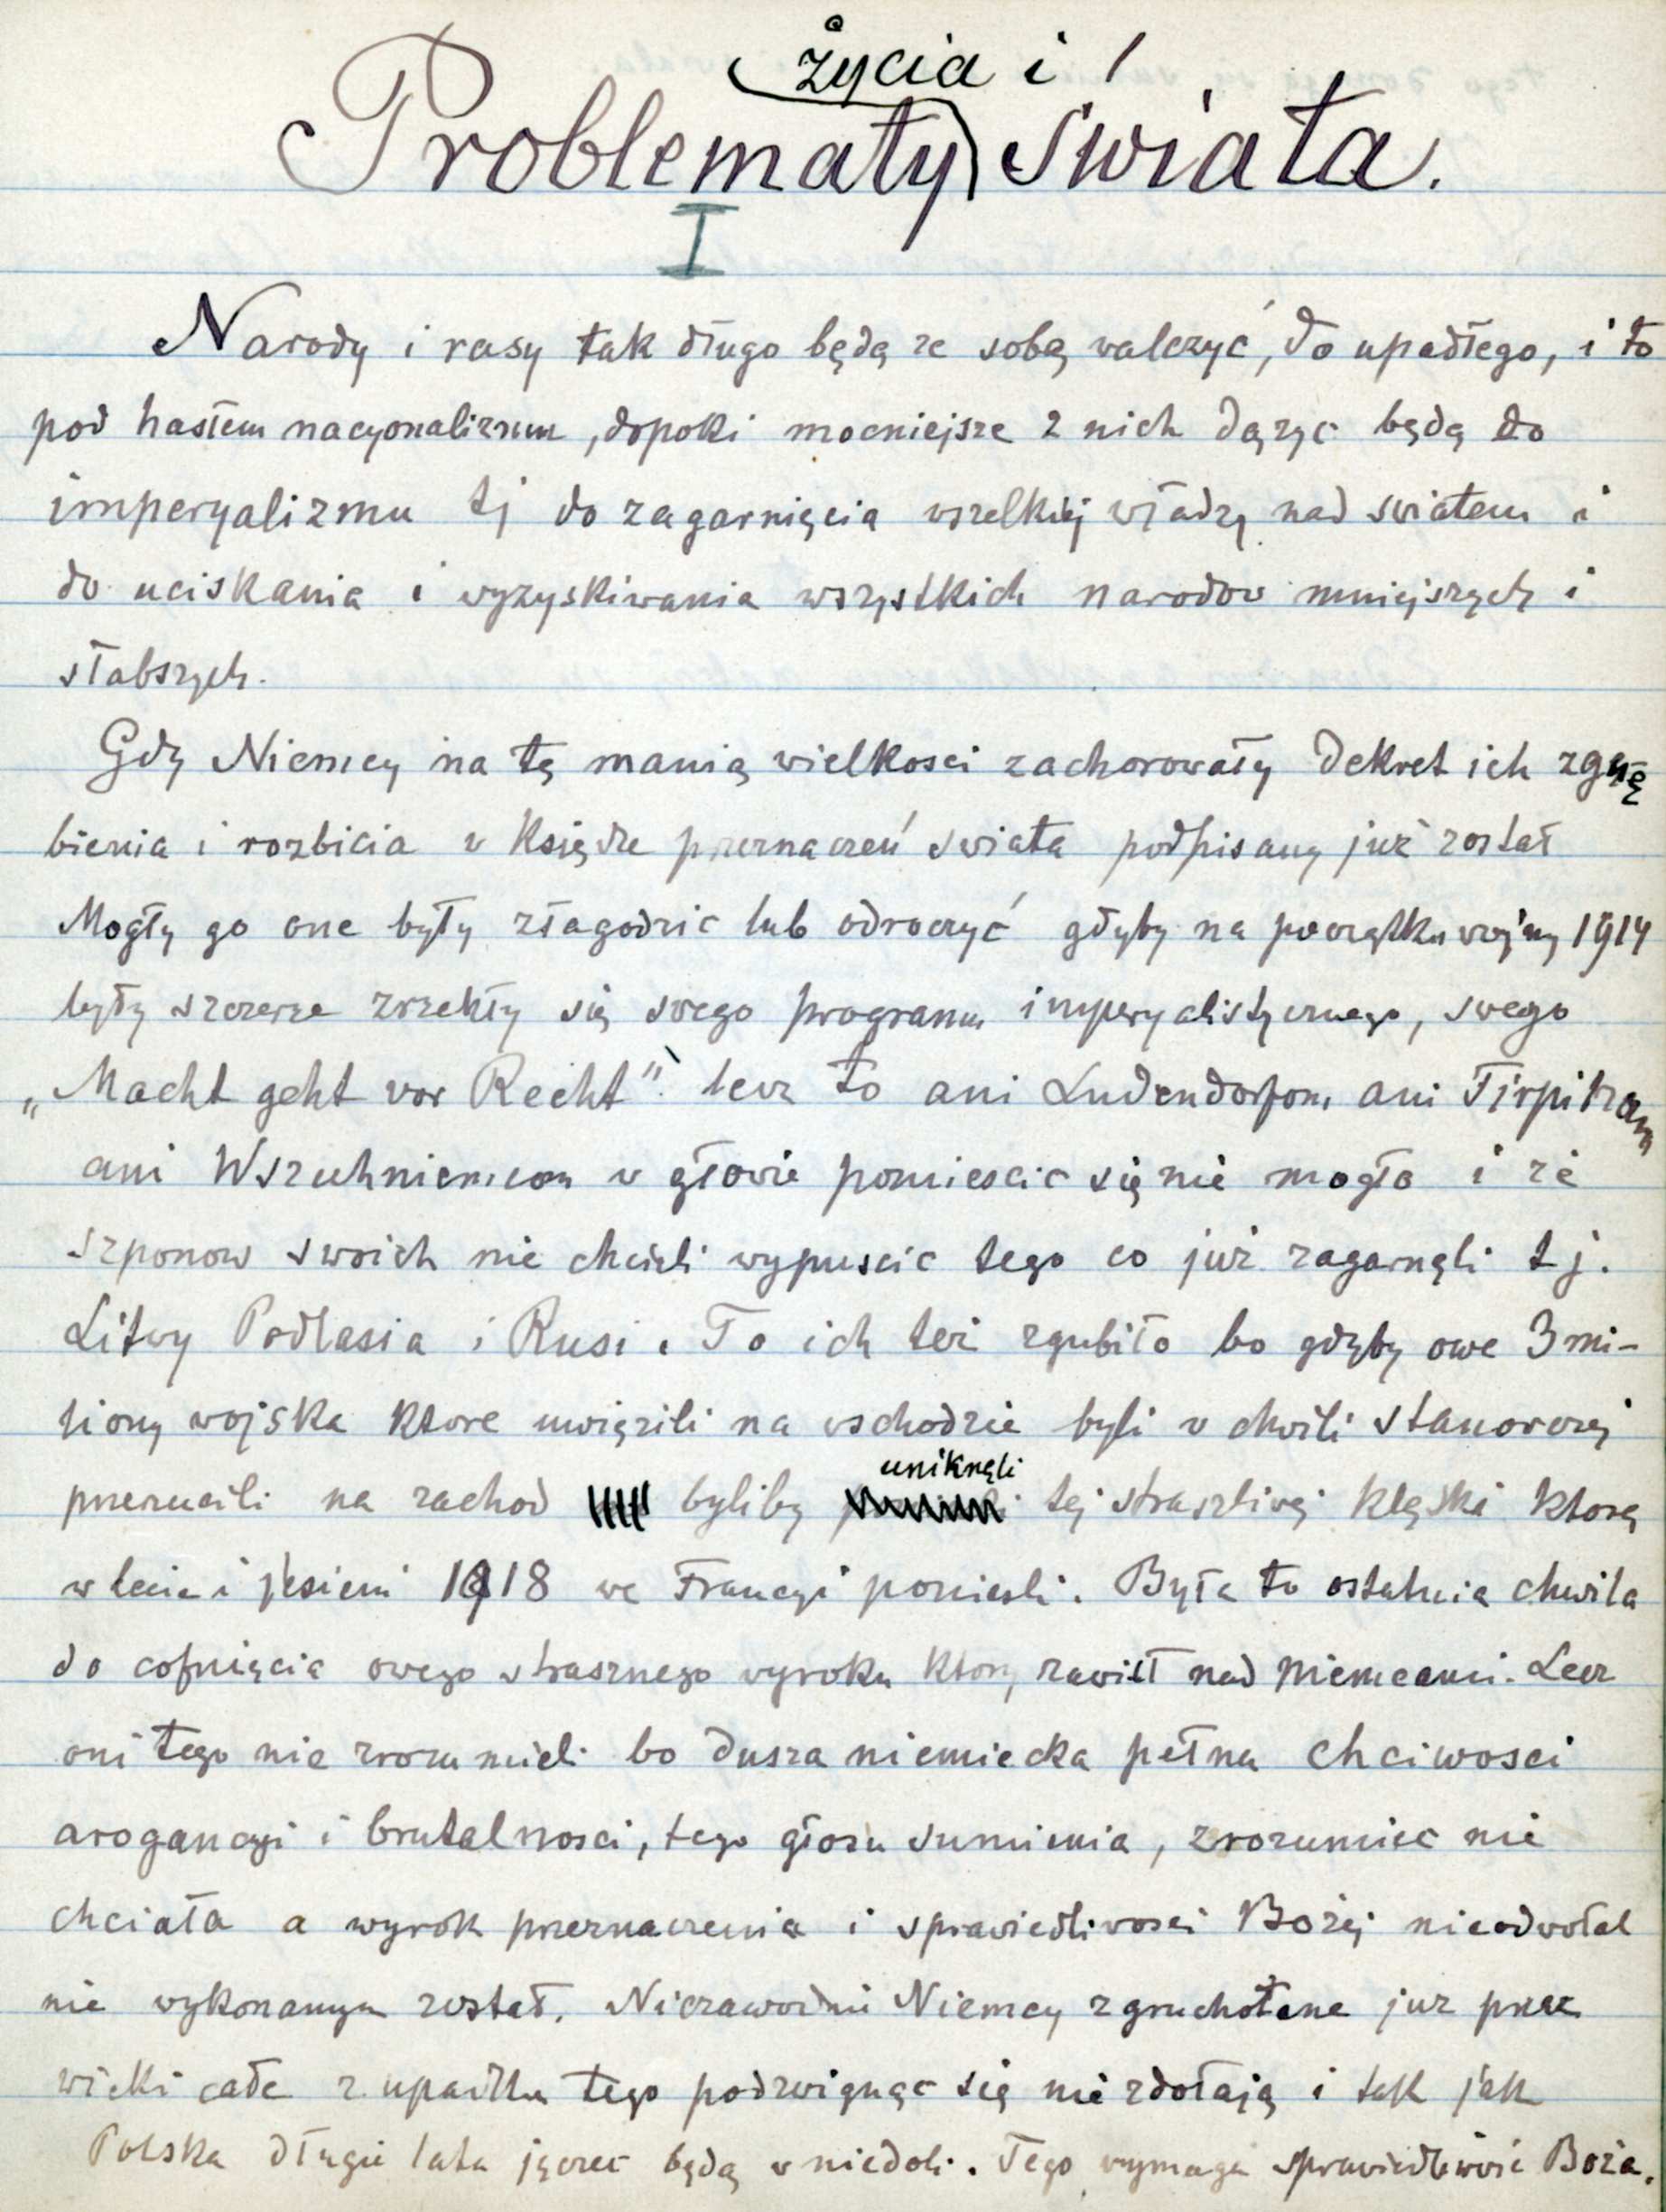 życia i
Problematy świata.
I
Narody i rasy tak długo będą ze sobą walczyć, do upadłego, i to
pod hasłem nacyonalizmu, dopoki mocniejsze z nich dążyc będą do
imperyalizmu tj do zagarnięcia wszelkiej władzy nad swiatem i
do uciskania i wyzyskiwania wszystkich narodow mniejszych i
słabszych.
Gdy Niemcy na tę manią wielkosci zachorowały Dekret ich zgnę
bienia i rozbicia w Księdze przeznaczeń swiata podpisany już został
Mogły go one były złagodzic lub odroczyć gdyby na początku wojny 1914
były szczerze zrzekły się swego programu imperyalistycznego, swego
„Macht geht vor Recht" lecz to ani Ludendorfom ani Tirpitzom
ani Wszechniemcom w głowie pomiescic się nie mogło i ze
szponow swoich nie chcieli wypuscic tego co już zagarnęli t j.
Litwy Podlasia i Rusi. To ich też zgubiło bo gdyby owe 3 mi-
liony wojska ktore uwięzili na wschodzie byli w chwili stanowczej
przerzucili na zachod byliby uniknęli tej straszliwej klęski ktorą
w lecie i jesieni 1918 we Francyi poniesli. Była to ostatnia chwila
do cofnięcia owego strasznego wyroku ktory zawisł nad Niemcami. Lecz
oni tego nie zrozumieli bo dusza niemiecka pełna chciwosci
arogancyi i brutalnosci, tego głosu sumienia, zrozumiec nie
chciała a wyrok przeznaczenia i sprawiedliwosci Bożej nieodwołal
nie wykonanym został. Niezawodnie Niemcy zgruchotane już przez
wieki całe z upadku tego podzwignąc się nie zdołają i tak jak
Polska długie lata jęczec będą w niedoli. Tego wymaga sprawiedliwość Boża.